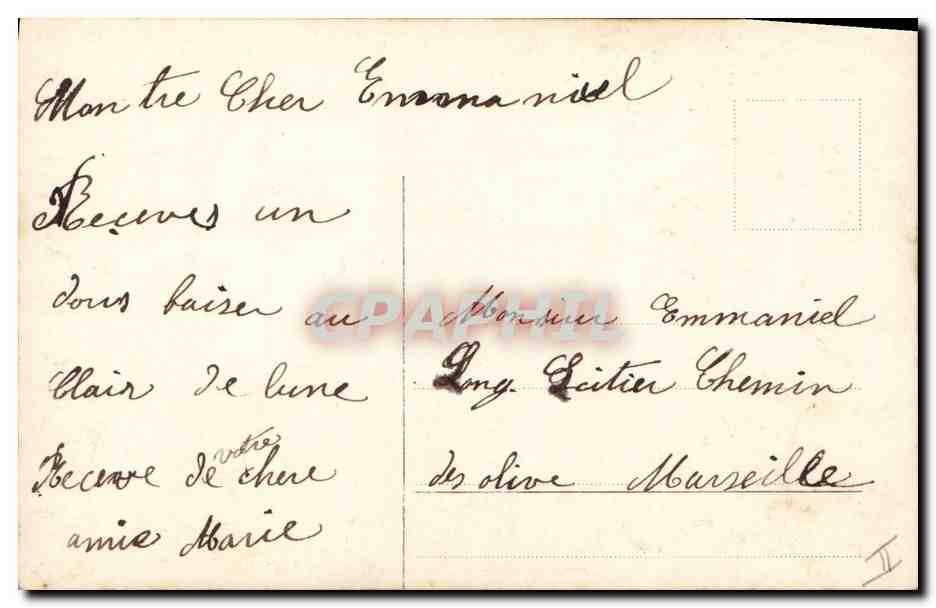 Mon tre Cher Emmaniel
Reçeves un
dous baiser au
Clair de lune
Recevre de votre chere
amie Marie
Monsiur Emmaniel
Long. Chemin
des olive Marseille
CPAPHIL
II